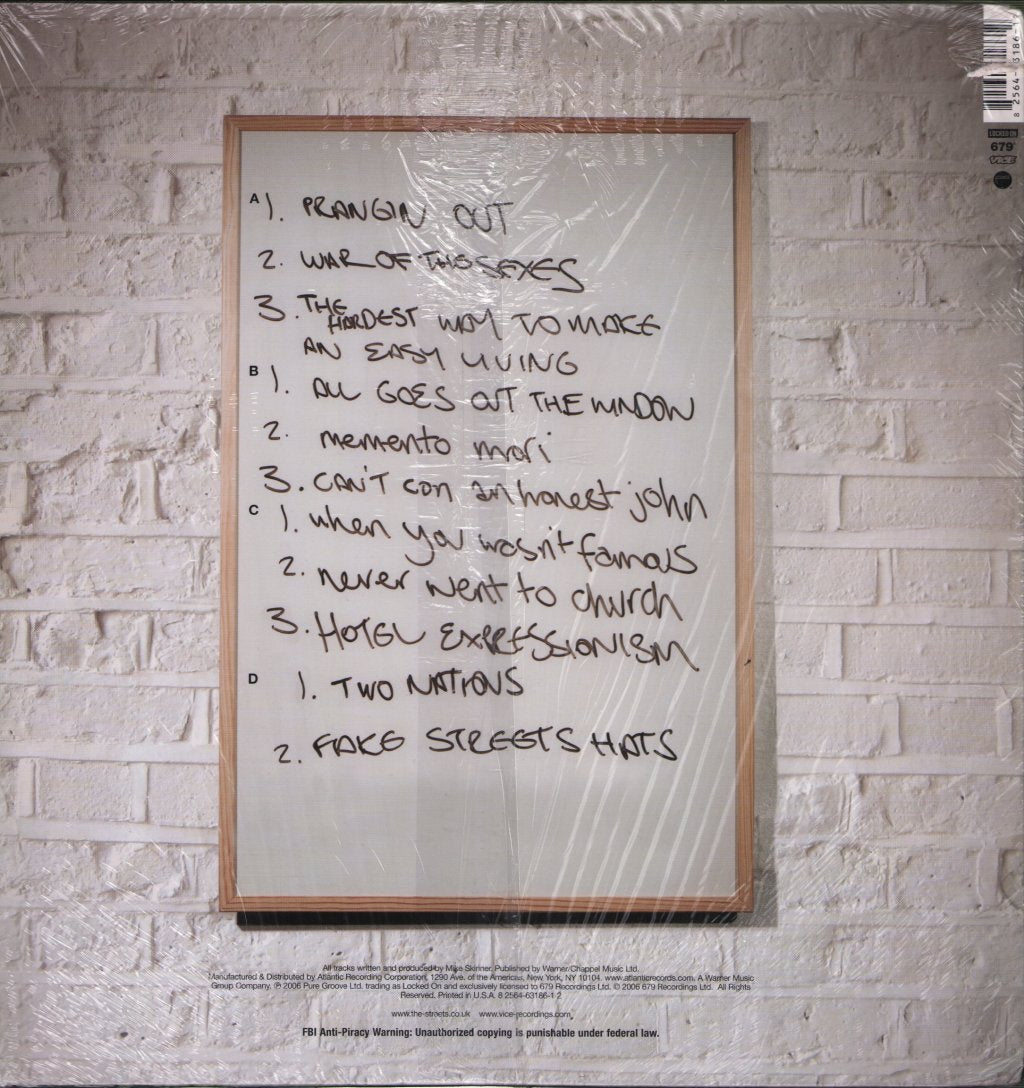 8 2564-63186-1
LOCKED ON
679
VICE
A 1. PRANGIN OUT
2. WAR OF THE SEXES
3. THE HARDEST WAY TO MAKE
AN EASY LIVING
B 1. ALL GOES OUT THE WINDOW
2. memento mori
3. CAN'T con an honest john
C 1. when you wasn't famous
2. never went to church
3. HOTEL EXPRESSIONISM
D 1. TWO NATIONS
2. FAKE STREETS HATS
All tracks written and produced by Mike Skinner. Published by Warner/Chappel Music Ltd.
Manufactured & Distributed by Atlantic Recording Corporation, 1290 Ave. of the Americas, New York, NY 10104. www.atlanticrecords.com. A Warner Music
Group Company. ℗ 2006 Pure Groove Ltd. trading as Locked On and exclusively licensed to 679 Recordings Ltd. © 2006 679 Recordings Ltd. All Rights
Reserved. Printed in U.S.A. 8 2564-63186-1 2
www.the-streets.co.uk www.vice-recordings.com
FBI Anti-Piracy Warning: Unauthorized copying is punishable under federal law.